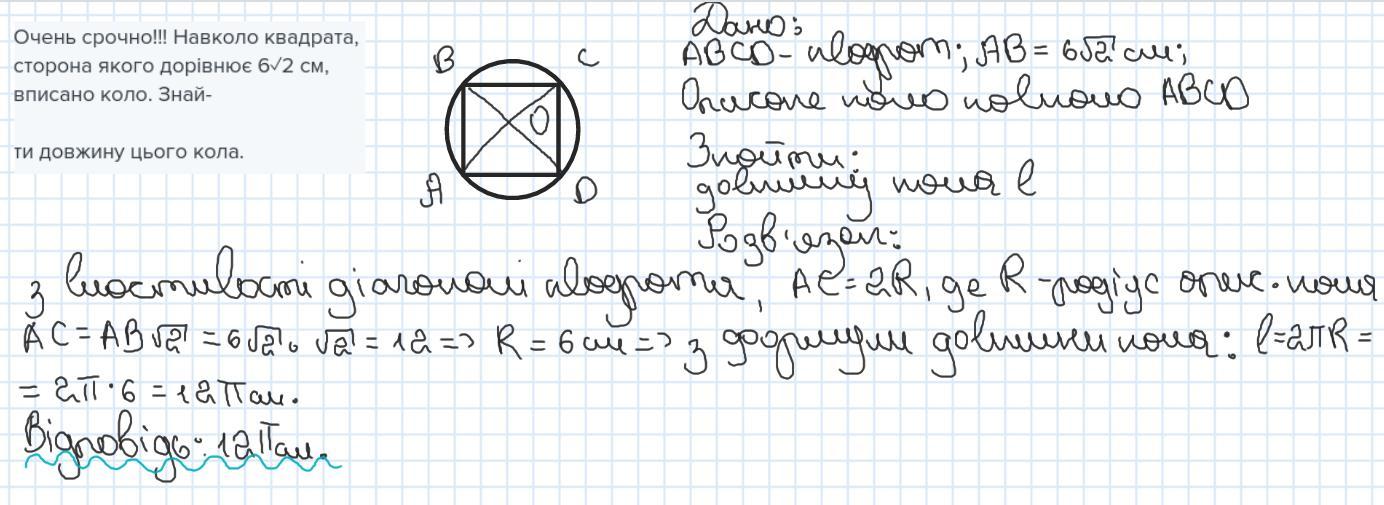 Очень срочно!!! Навколо квадрата,
сторона якого дорівнює 6√2 см,
вписано коло. Знай-
ти довжину цього кола.
B C
O
A D
Дано:
ABCD - квадрат; AB = 6√2 см;
Описане коло навколо ABCD
Знайти:
довжину кола l
Розв'язок:
З властивості діагоналі квадрата, AC = 2R, де R - радіус опис. кола
AC = AB√2 = 6√2 · √2 = 12 => R = 6 см => з формули довжини кола: l = 2πR =
= 2π · 6 = 12π см.
Відповідь: 12π см.